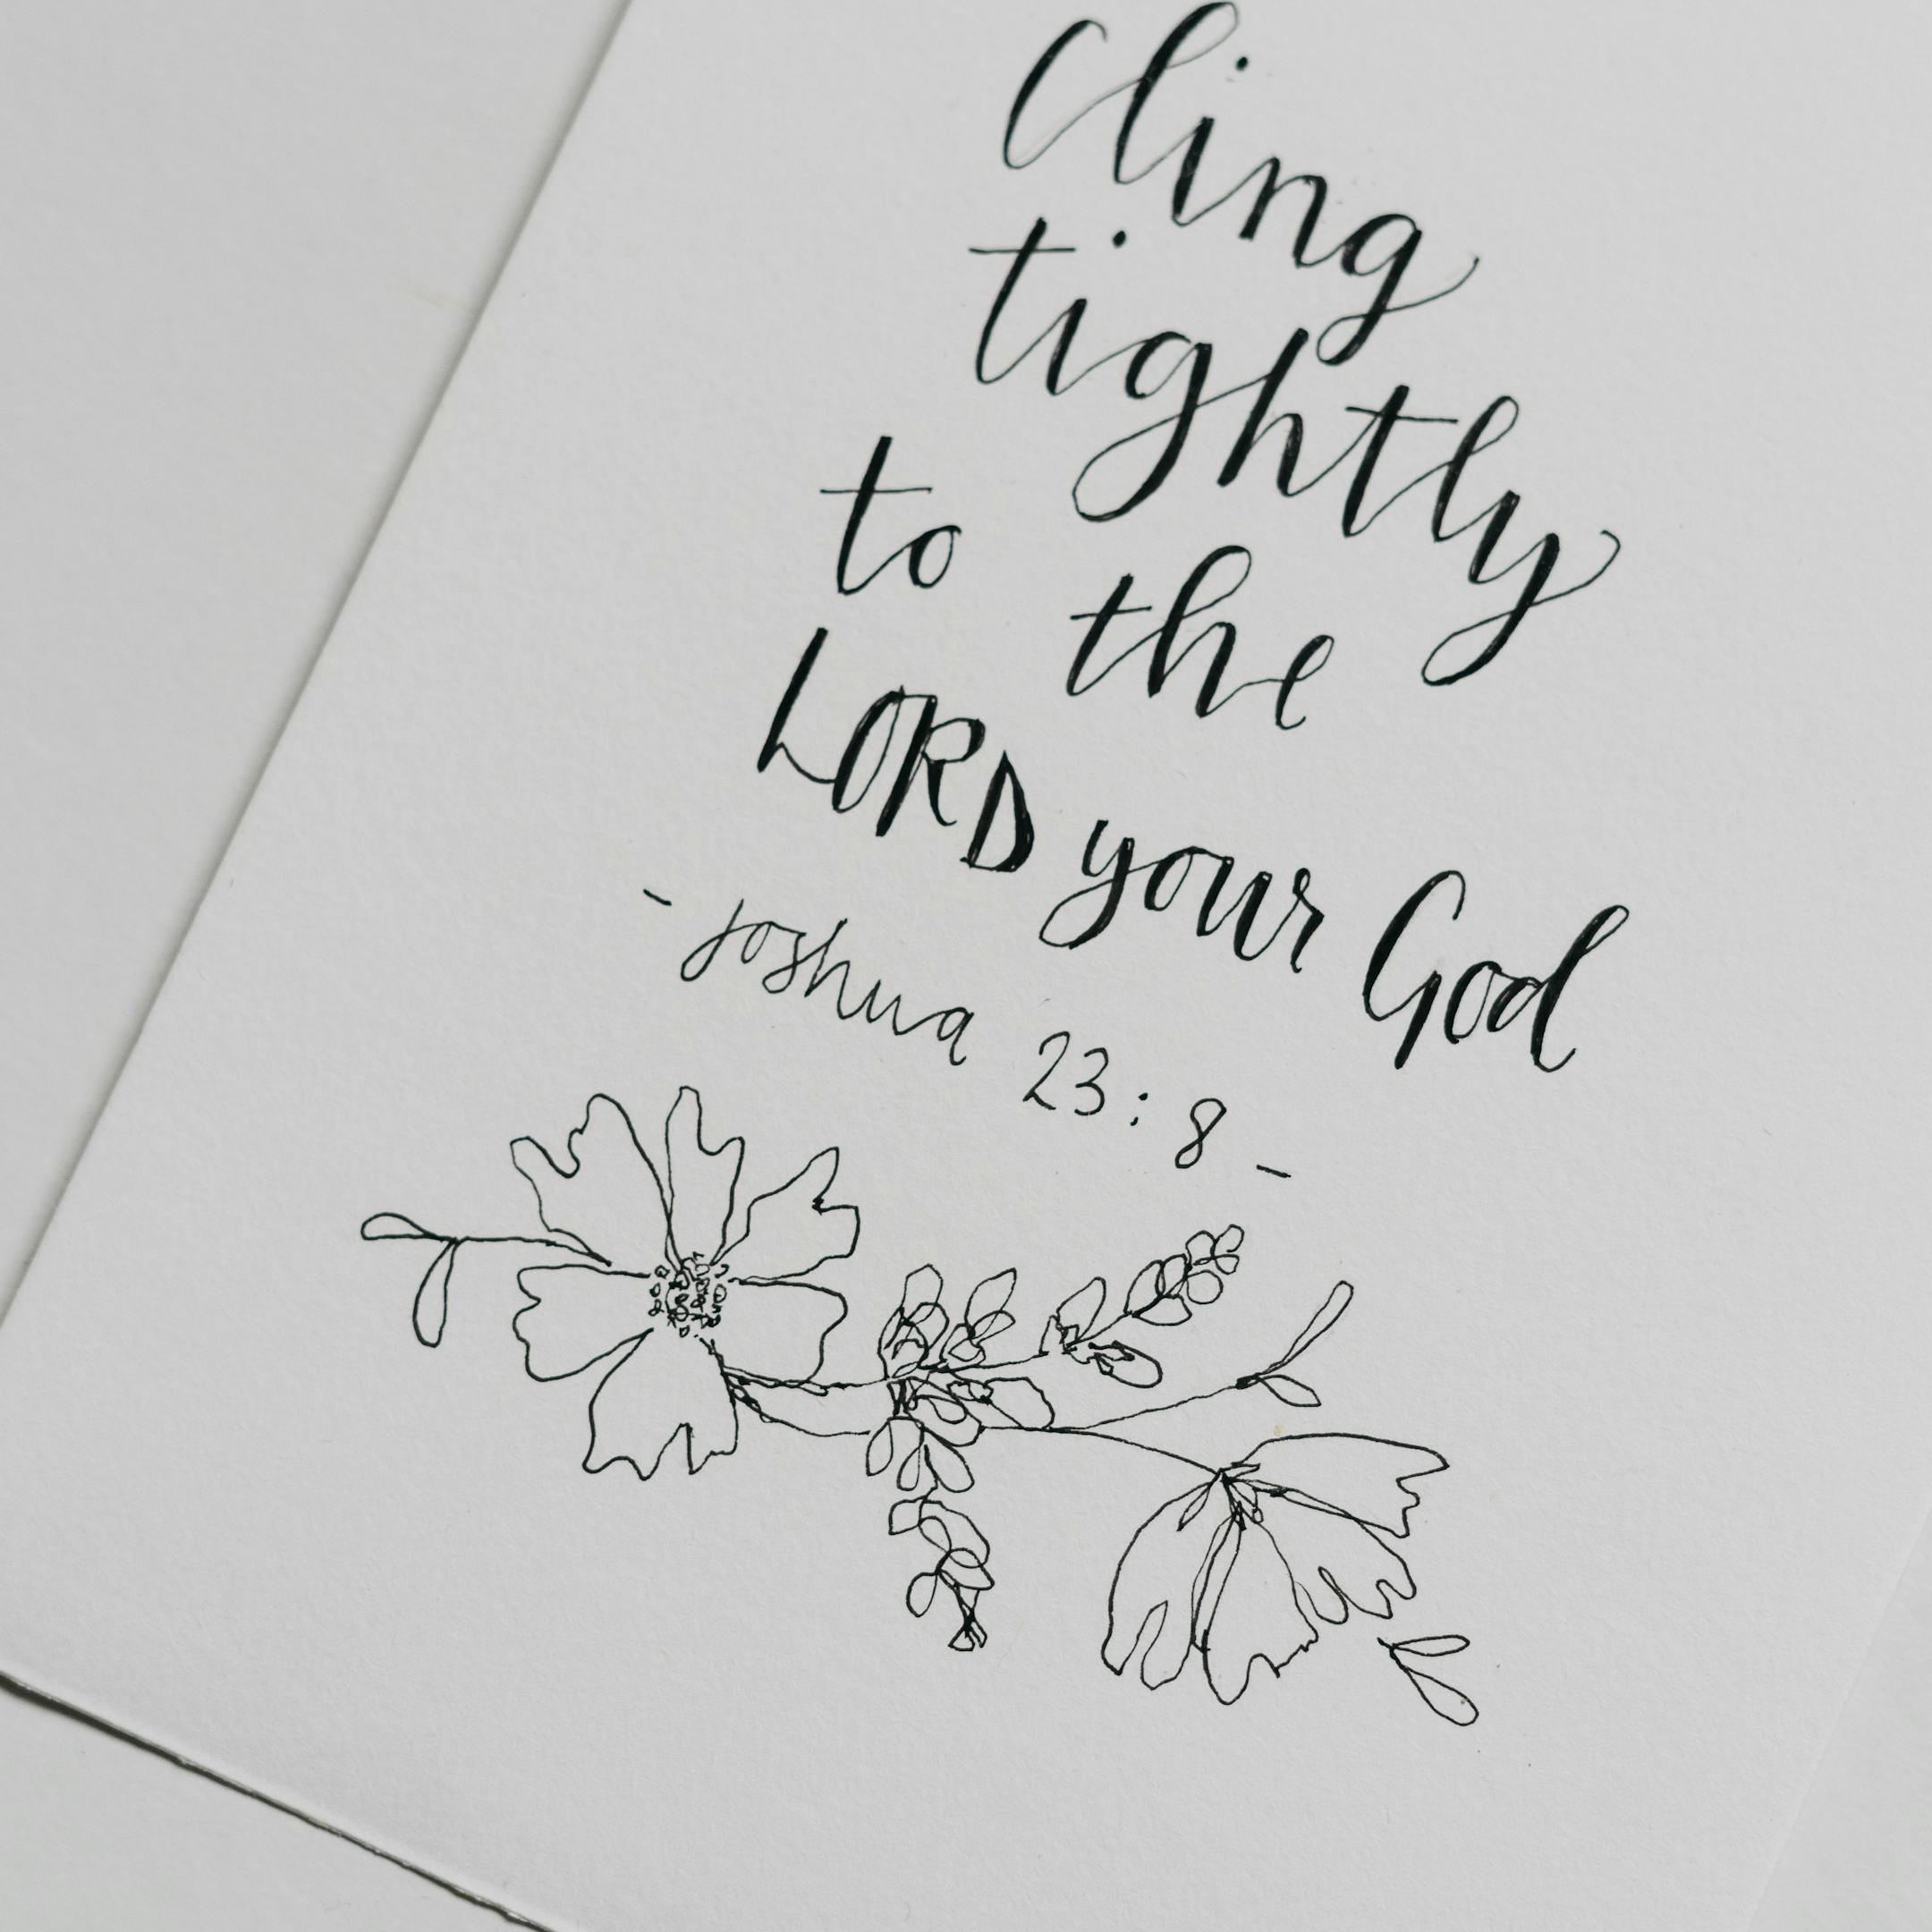 cling
tightly
to the
LORD your God
- Joshua 23:8 -